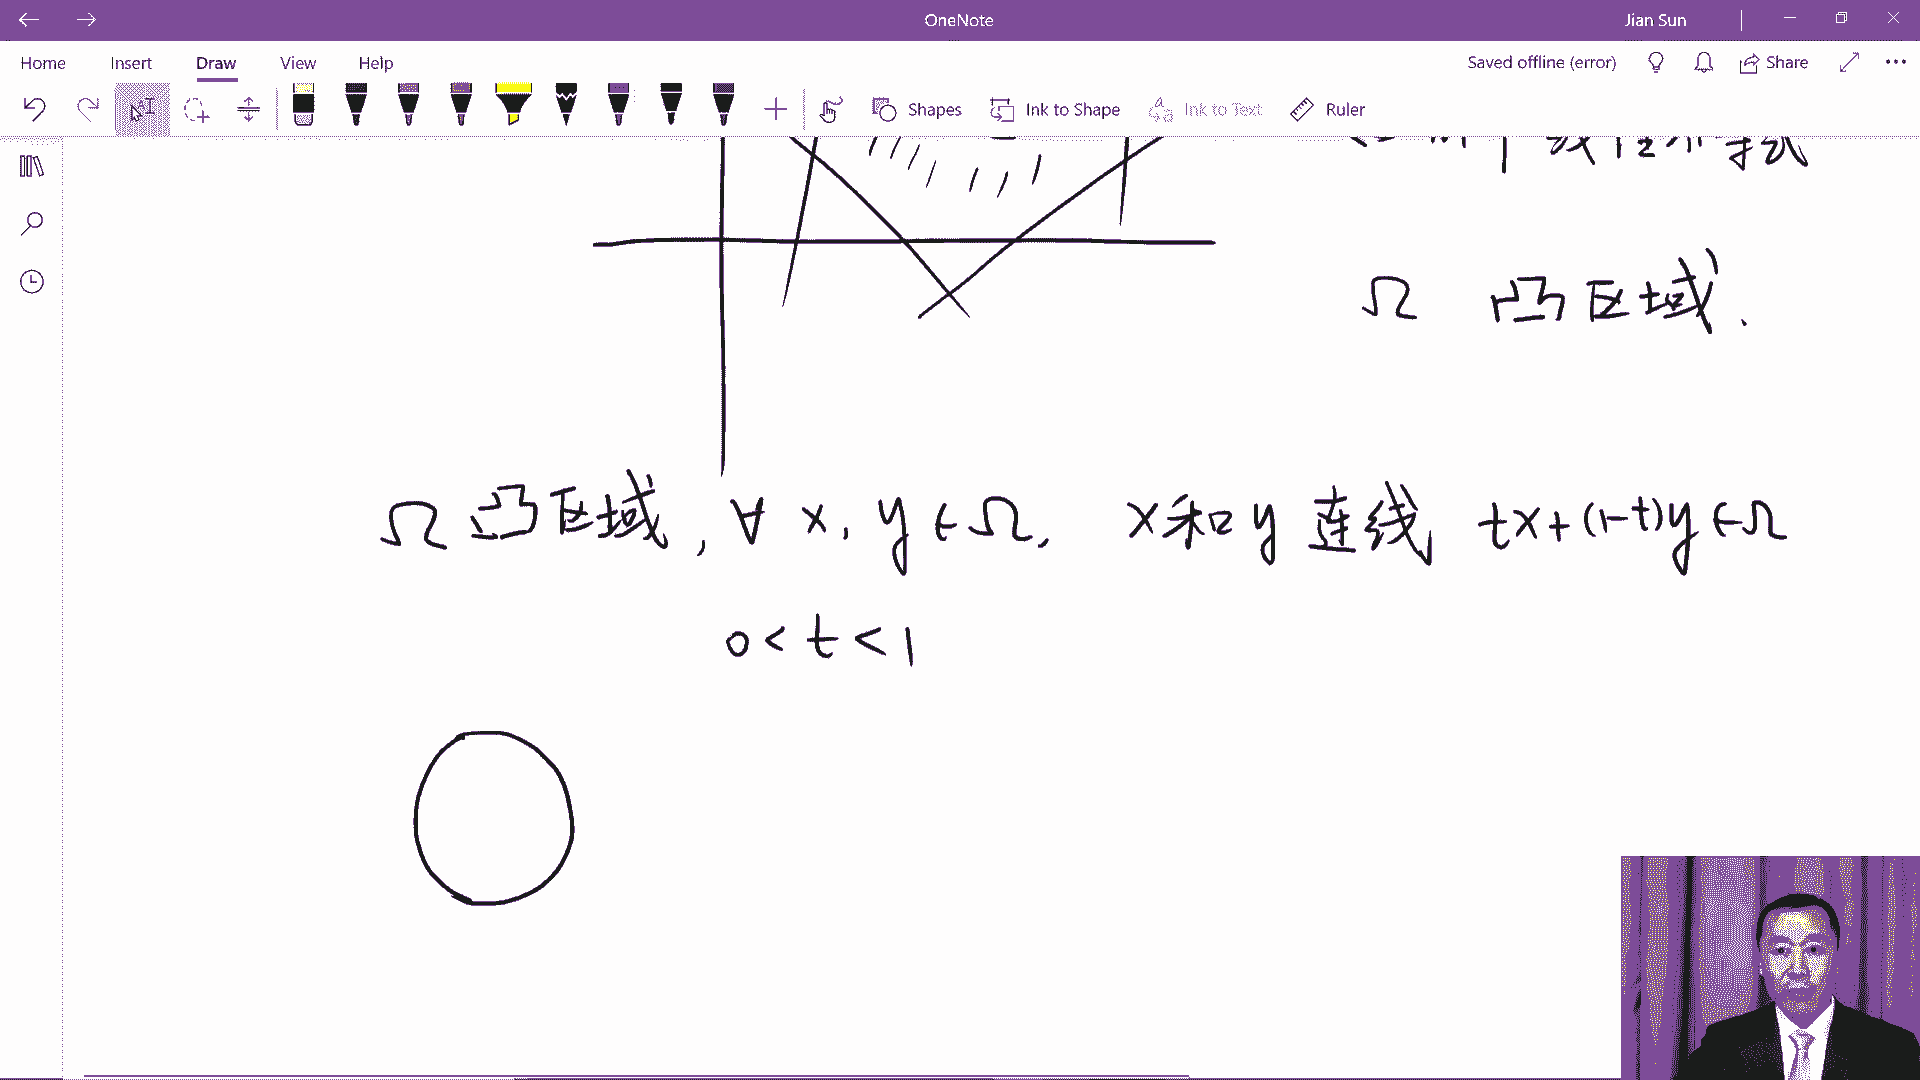 OneNote
Jian Sun
Home Insert Draw View Help
Saved offline (error) Share
Shapes Ink to Shape Ink to Text Ruler
个线性不等式
Ω 凸区域.
Ω 凸区域, ∀ x, y ∈ Ω, x和y连线 tx+(1-t)y ∈ Ω
0 < t < 1